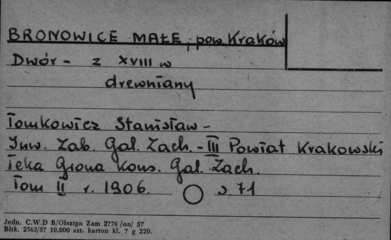 BRONOWICE MAŁE, pow. Kraków
Dwór - z XVIII w
drewniany
Tomkowicz Stanisław -
Inw. Zab. Gal. Zach. - III Powiat Krakowski
Teka Grona Kons. Gal. Zach.
Tom II r. 1906. s. 71
Jedn. C.W.D B/Olsztyn Zam 2776 /on/ 57
Bltk. 2563/57 10.000 szt. karton kl. 7 g 220.